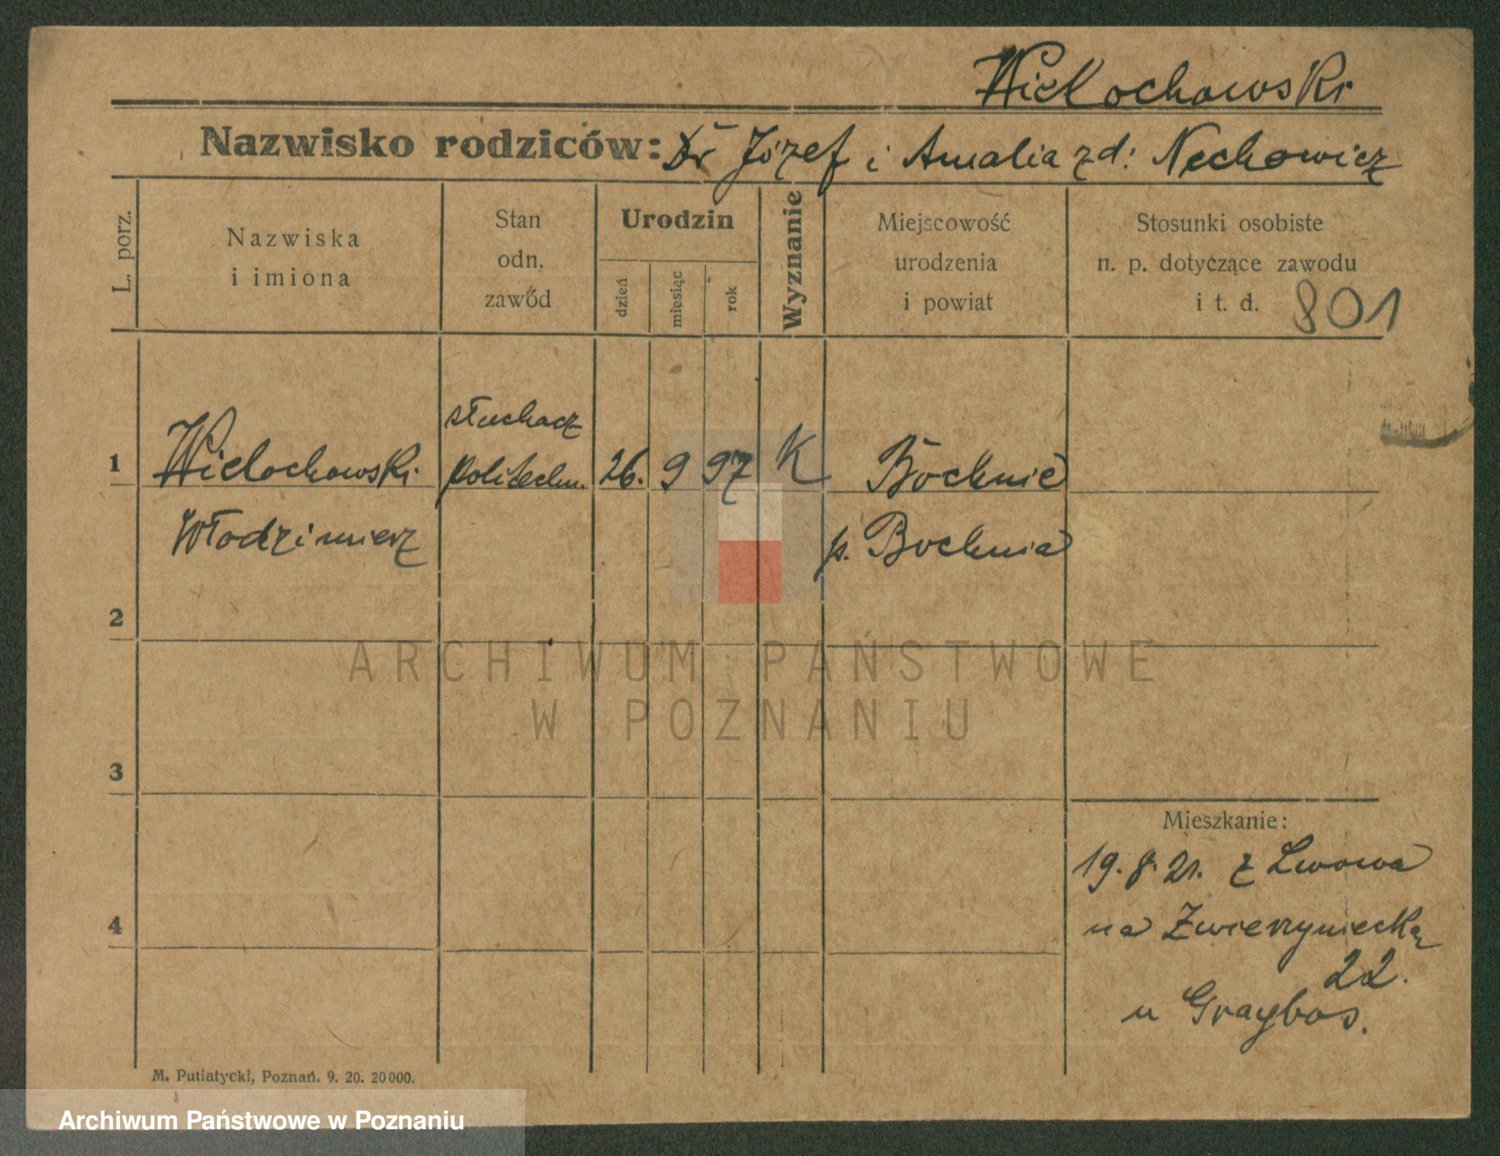 Wielochowski
Nazwisko rodziców: Dr Józef i Amalia z d: Nechowicz
L. porz.
Nazwiska
i imiona
Stan
odn.
zawód
Urodzin
dzień
miesiąc
rok
Wyznanie
Miejscowość
urodzenia
i powiat
Stosunki osobiste
n. p. dotyczące zawodu
i t. d. 801
słuchacz
1 Wielochowski politechn. 26. 9 97 K Bochnia
Włodzimierz p. Bochnia
2
ARCHIWUM PAŃSTWOWE
W POZNANIU
3
Mieszkanie:
19.8.21. z Lwowa
4 na Zwierzyniecką
22.
u Graybos.
M. Putiatycki, Poznań. 9. 20. 20000.
Archiwum Państwowe w Poznaniu